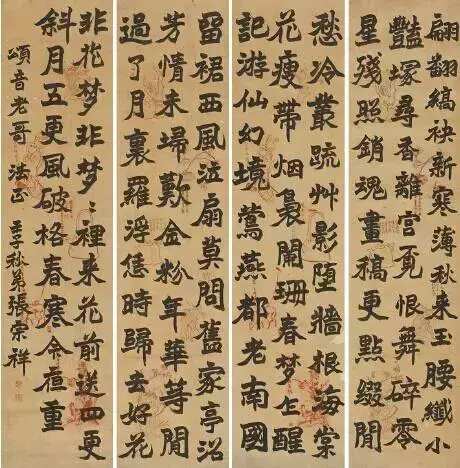 翩翻縞袂新寒薄秋來玉腰纖小
豔塚尋香離宮覓恨舞碎零
星殘照銷魂畫稿更點綴閒
愁冷叢疏艸影墮牆根海棠
花瘦帶烟裊闌珊春夢乍醒
記游仙幻境鶯燕都老南國
留裙西風泣扇莫問舊家亭沼
芳情未埽歎金粉年華等閒
過了月裏羅浮恁時歸去好花
非花夢非夢〻裡來花前送四更
斜月五更風破格春寒令重
頌音老哥 法正 秋弟張宗祥